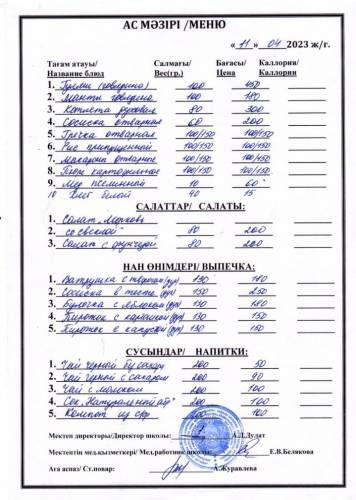 АС МӘЗІРІ /МЕНЮ
« 11 » 04 2023 ж/г.
Тағам атауы/ Салмағы/ Бағасы/ Каллория/
Название блюд Вес(гр.) Цена Каллории
1. Гуляш (говядина) 100 450
2. Манты говядина 100 180
3. Котлета духовая 80 300
4. Сосиска отварная 60 200
5. Гречка отварная 100/150 100/150
6. Рис припущенной 100/150 100/150
7. Макароны отварное 100/150 100/150
8. Пюре картофельное 100/150 100/150
9. Мед пчелинный 10 60
10 Хлеб белой 40 15
САЛАТТАР/ САЛАТЫ:
1. Салат "Морковь
2. со свеклой" 80 200
3. Салат с фунчозой 80 200
НАН ӨНІМДЕРІ/ ВЫПЕЧКА:
1. Ватрушка с творогом 130 180
2. Сосиска в тесте 150 250
3. Булочка с яблоком 130 180
4. Пирожок с картошкой 130 150
5. Пирожок с капустой 130 150
СУСЫНДАР/ НАПИТКИ:
1. Чай черной без сахара 200 50
2. Чай черной с сахаром 200 90
3. Чай с молоком 200 100
4. Сок Натуральной 200 100
5. Компот из 200 100
Мектеп директоры/Директор школы: А.Л.Дулат
Мектептің мед.қызметкері/ Мед.работник школы: Е.В.Белякова
Аға аспаз/ Ст.повар: А.Журавлева